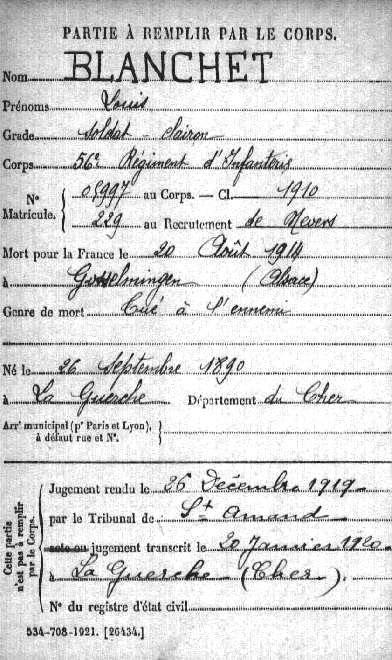 PARTIE À REMPLIR PAR LE CORPS.
Nom BLANCHET
Prénoms Louis
Grade Soldat -
Corps 56e Régiment d'Infanterie
N° Matricule. { 05997 au Corps. — Cl. 1910
229 au Recrutement de Nevers
Mort pour la France le 20 Août 1914
à Gosselmingen (Alsace)
Genre de mort Tué à l'ennemi
Né le 26 Septembre 1890
à La Guerche Département du Cher
Arrt municipal (pr Paris et Lyon), à défaut rue et N°. }
Cette partie n'est pas à remplir par le Corps.
Jugement rendu le 26 Décembre 1919
par le Tribunal de St Amand
acte ou jugement transcrit le 20 Janvier 1920
à La Guerche (Cher).
N° du registre d'état civil
534-708-1921. [26434.]